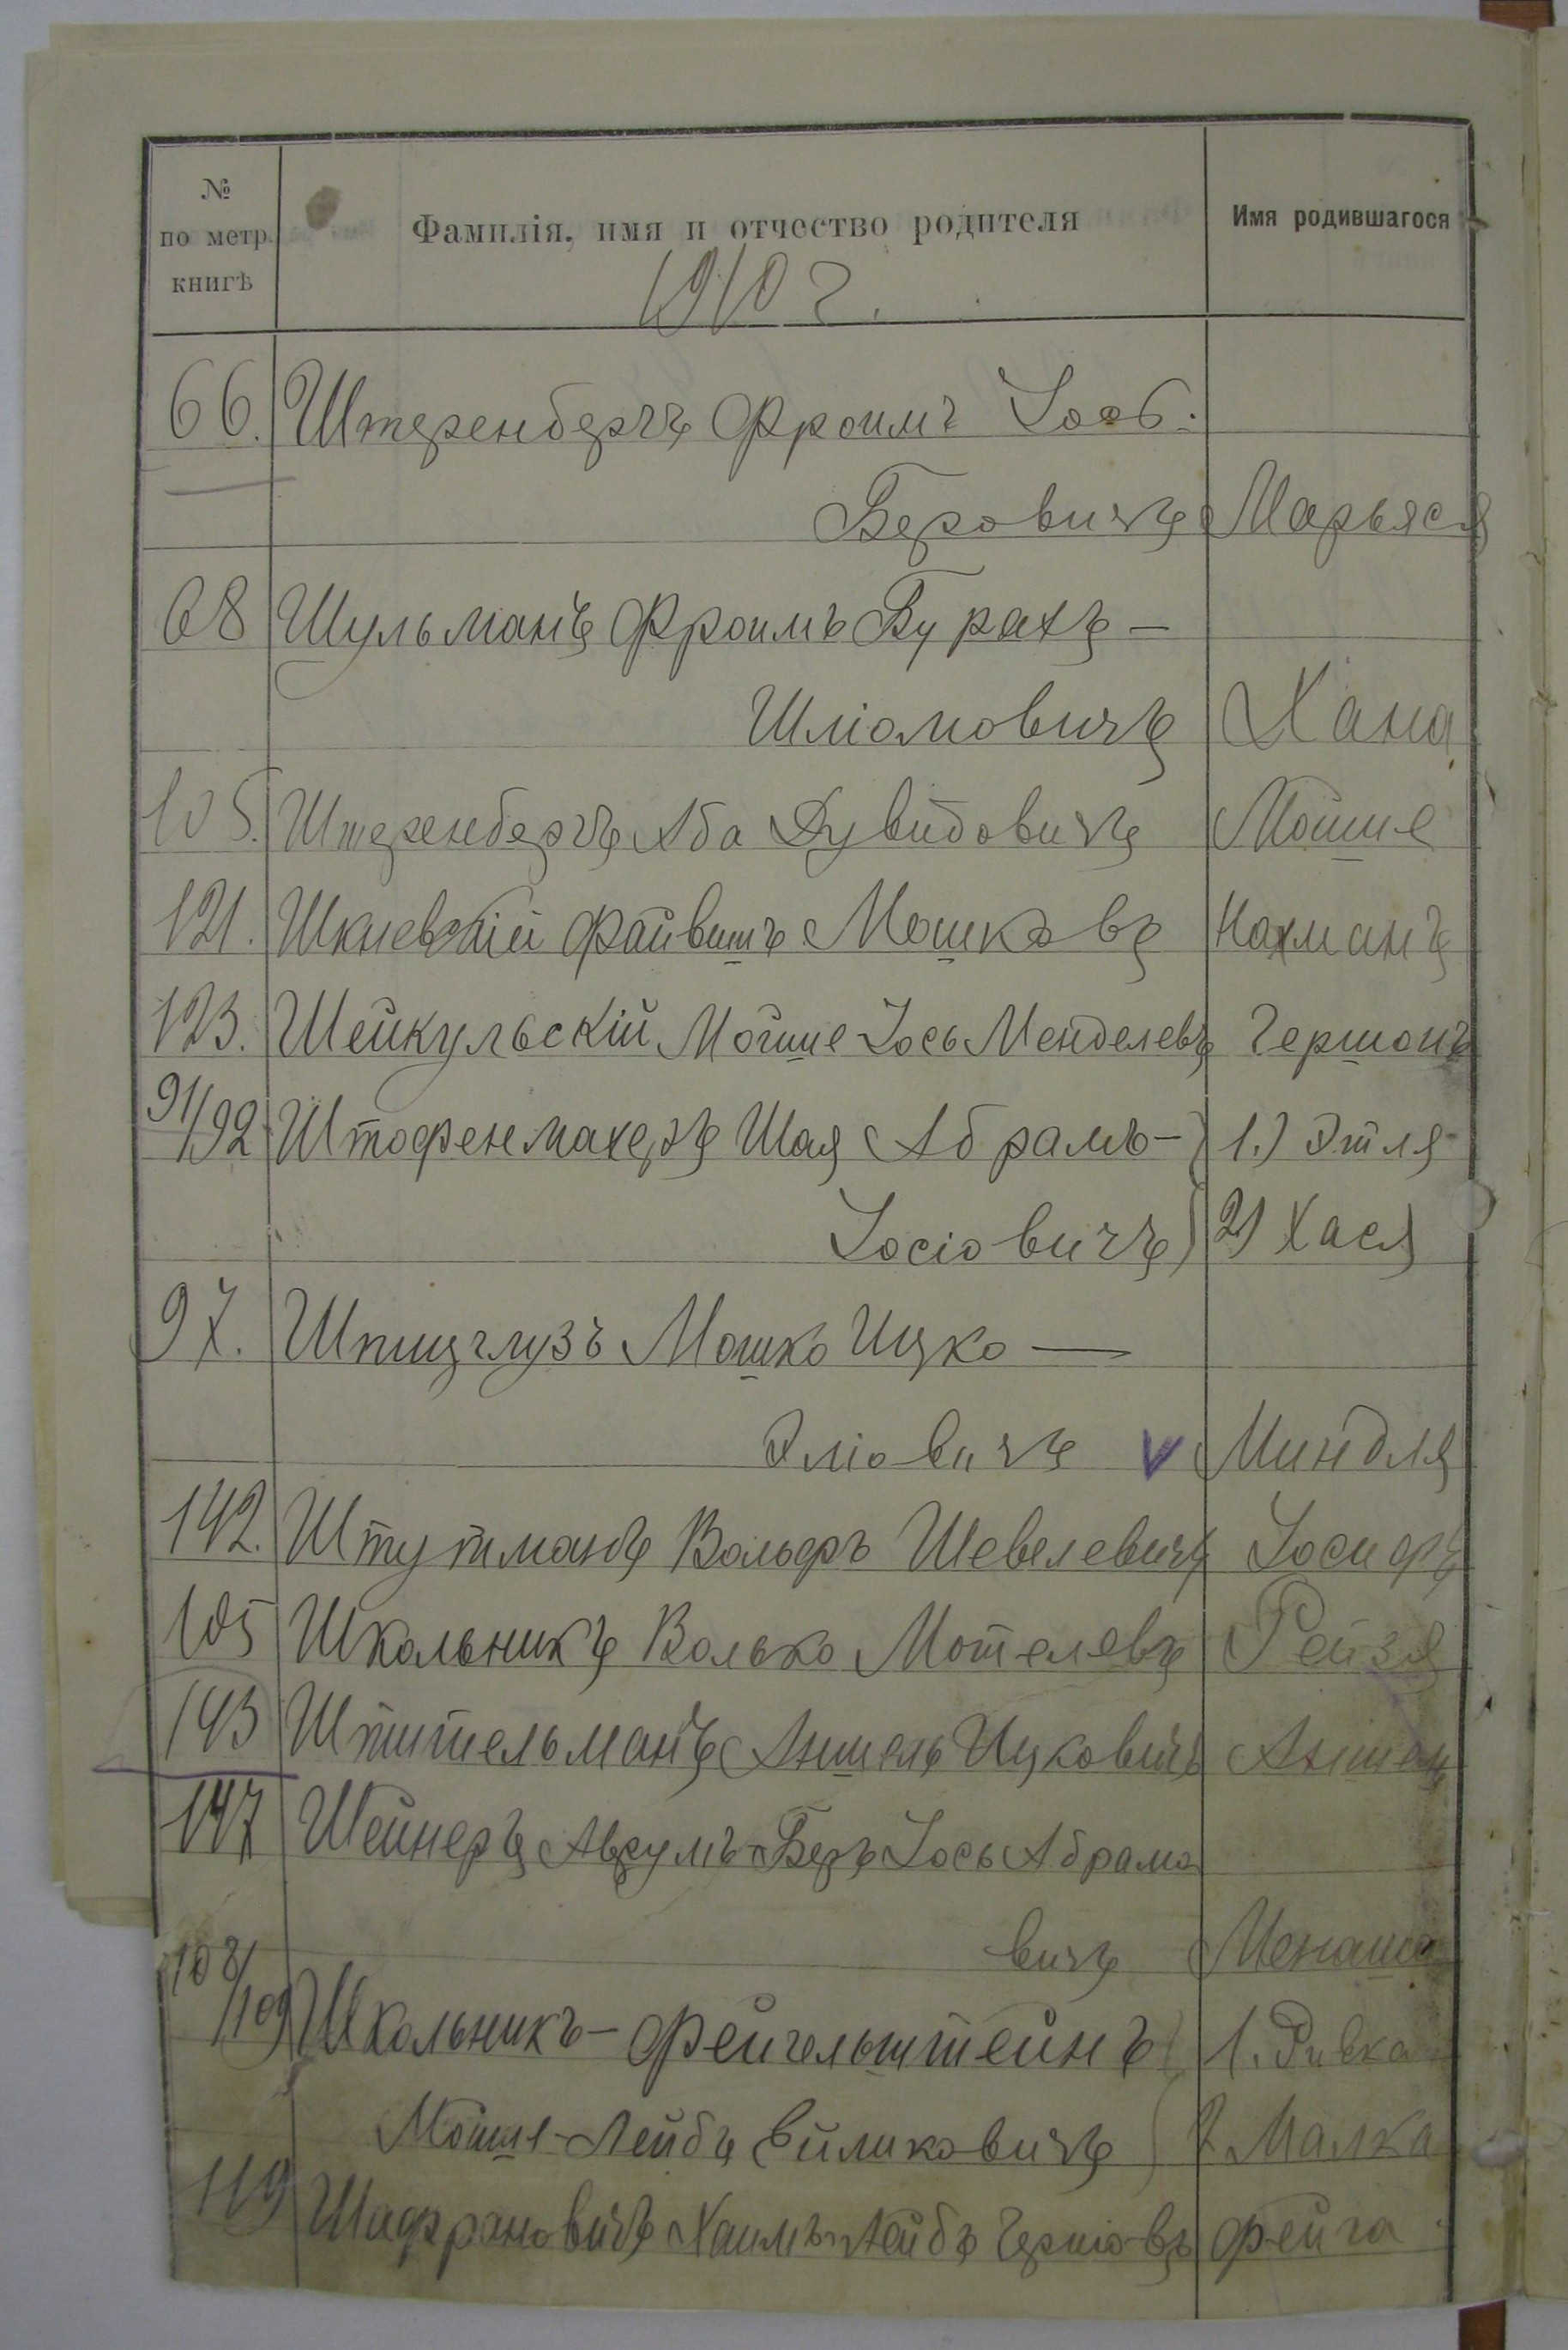 № по метр. книгѣ
Фамилія, имя и отчество родителя
Имя родившагося
1910 г.
66. Штеренбергъ Фроимъ Іось.
Беровичъ Марьяся
68 Шульманъ Фроимъ Бурахъ —
Шліомовичъ Хана
105. Штеренбергъ Аба Дувидовичъ Мошие
121. Шкневскій Файвишъ Мошковъ Нахманъ
123. Шейкульскій Мойше Іось Менделевъ Гершонъ
91/92 Штофенмахеръ Шая Абрамъ - 1.) Этля
Іосіовичъ 2) Хася
97. Шпицглузъ Мошко Ицко —
Эліовичъ V Миндля
142. Штутманъ Вольфъ Шевелевичъ Іосифъ
105 Школьникъ Волько Мотелевъ Рейзя
143 Штительманъ Аншель Ицковичъ
147 Шейнеръ Аврумъ-Беръ Іось Абрамо
вичъ Менаша
108/109 Школьникъ - Фейгельштейнъ 1. Ривка
Мошя-Лейбъ 2 Малка
119 Шафрановичъ Хаимъ-Лейбъ Гершовъ Фейга